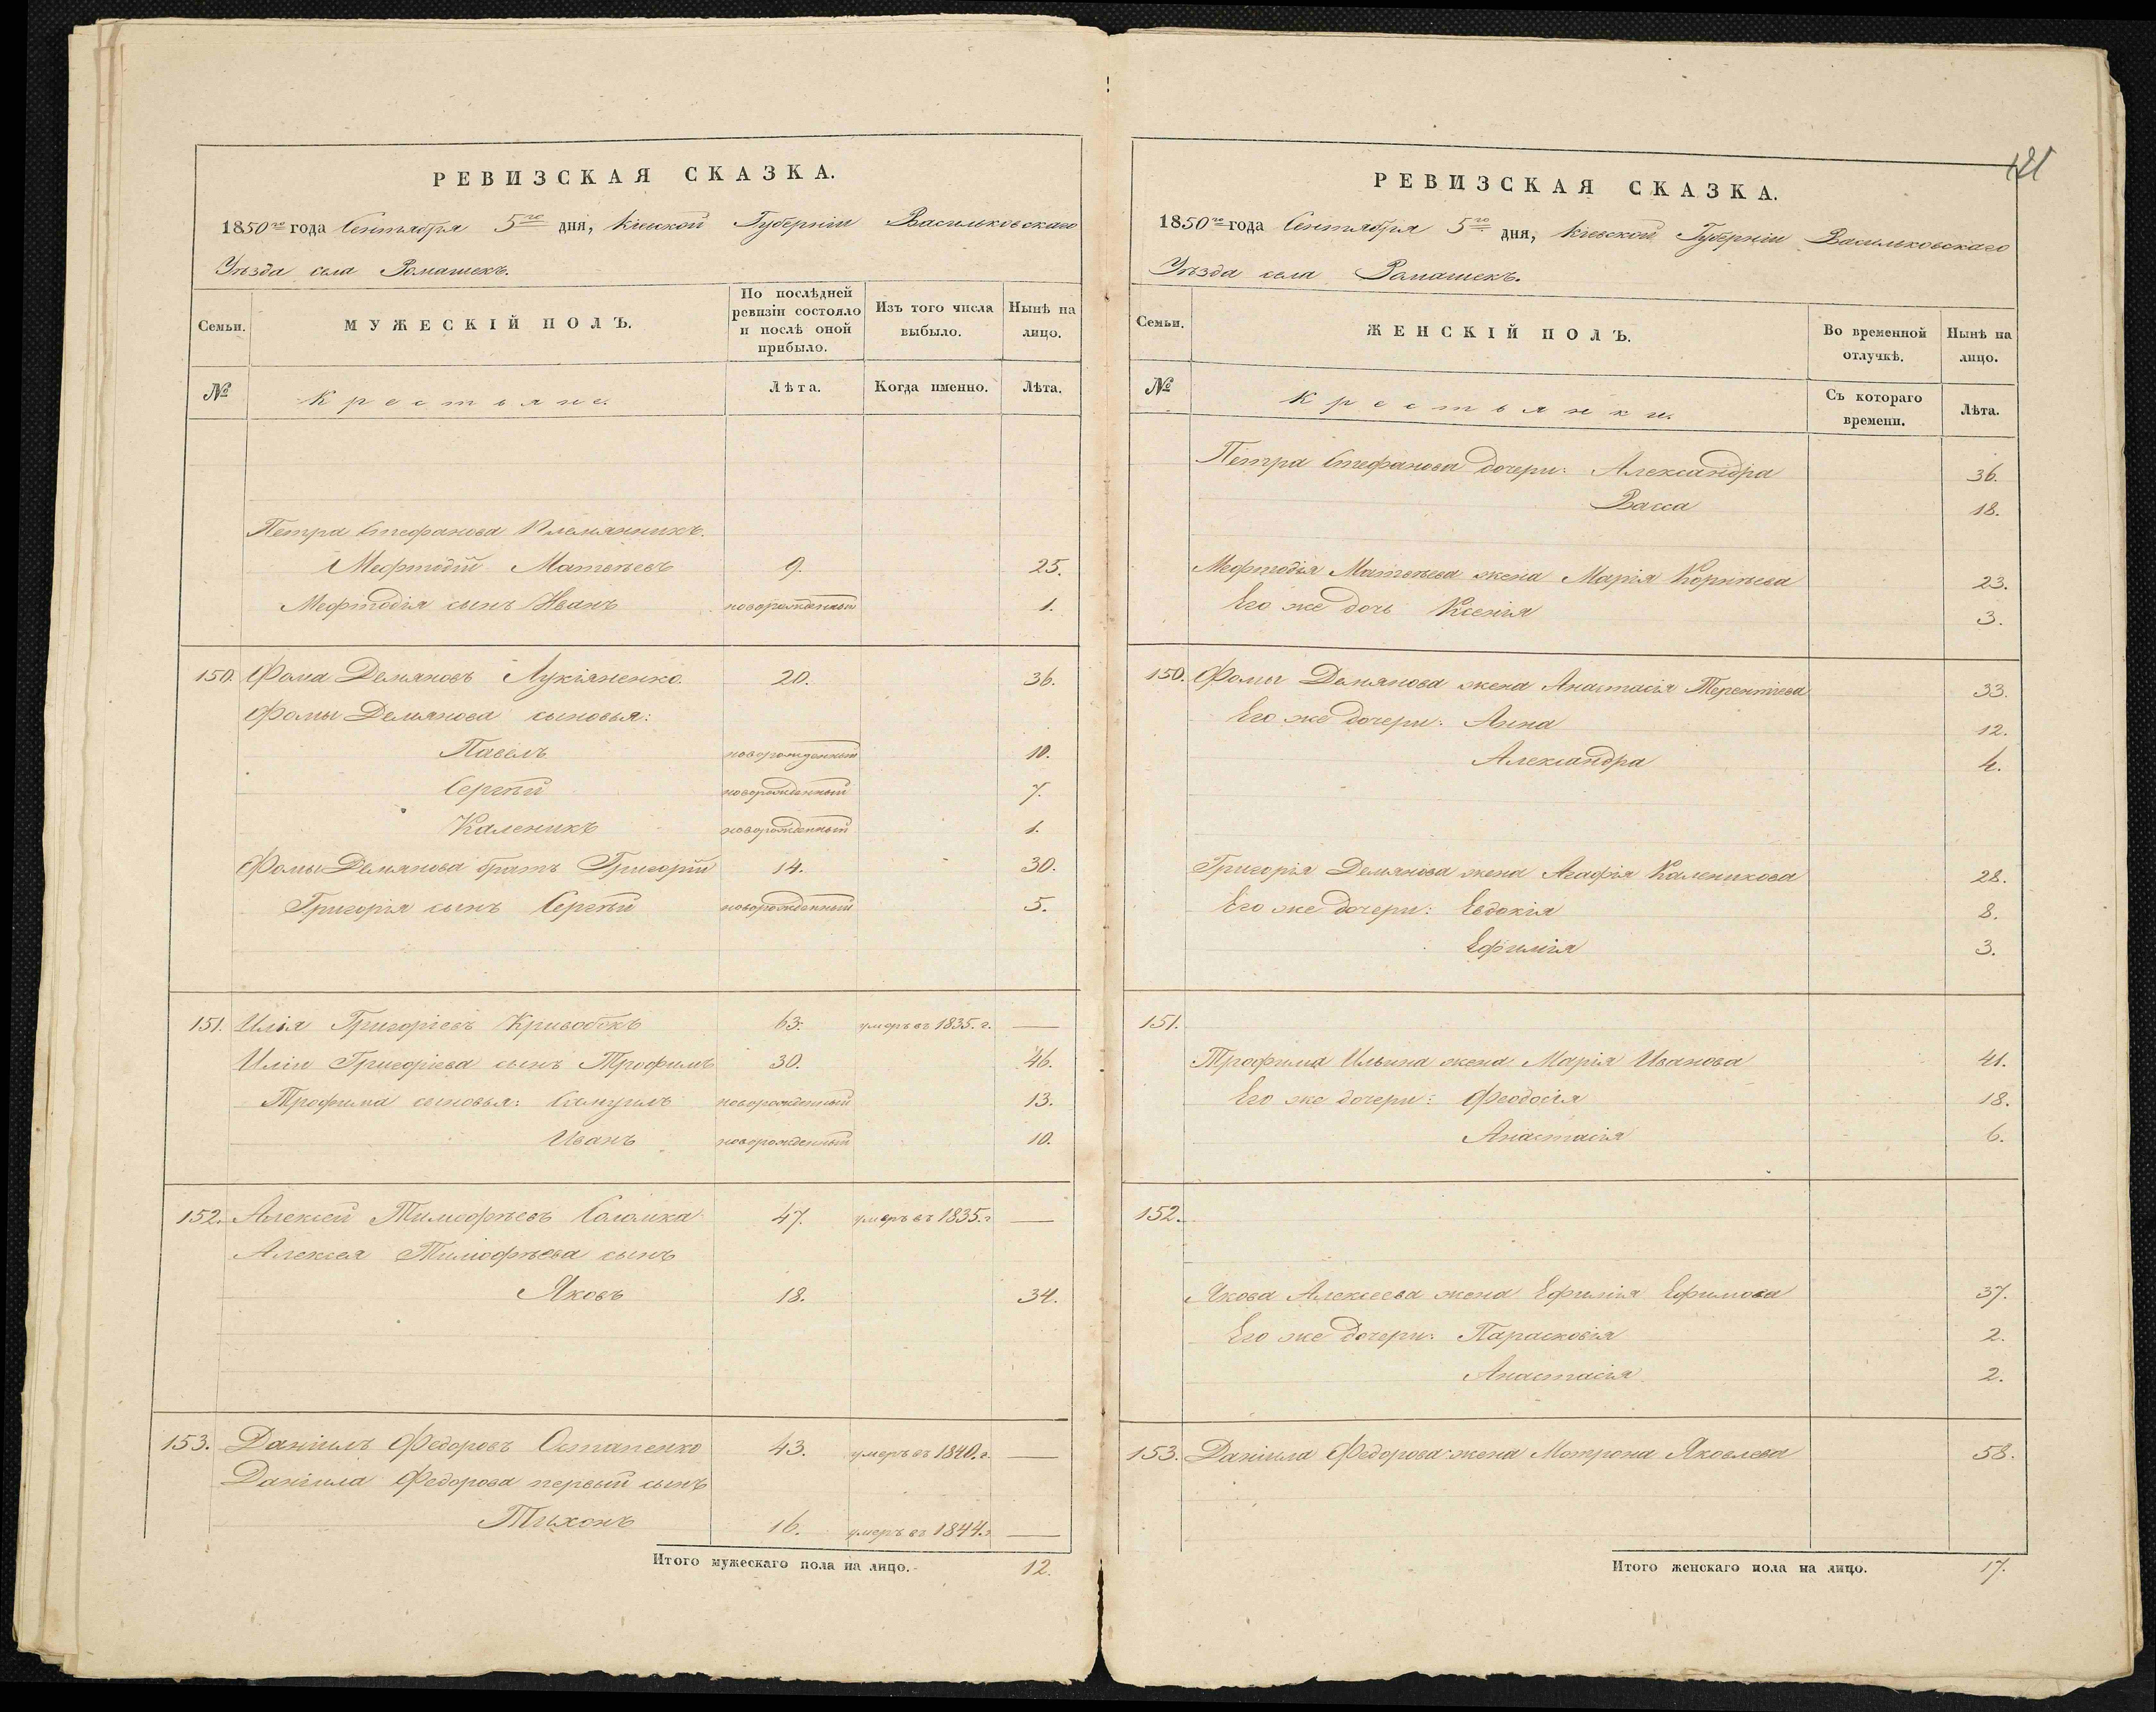 РЕВИЗСКАЯ СКАЗКА.
1850го года Сентября 5го дня, Кіевской Губерніи Васильковскаго
Уѣзда села Ромашекъ.
Семьи.
МУЖЕСКІЙ ПОЛЪ.
По послѣдней ревизіи состояло и послѣ оной прибыло.
Изъ того числа выбыло.
Нынѣ на лицо.
№
Крестьяне.
Лѣта.
Когда именно.
Лѣта.
Петра Стефанова Племянникъ.
Мефтодій Матвѣевъ 9. 25.
Мефтодія сынъ Иванъ новорожденный 1.
150. Фома Демяновъ Лукіяненко. 20. 36.
Фомы Демянова сыновья:
Павелъ новорожденный 10.
Сергѣй новорожденный 7.
Каленикъ новорожденный 1.
Фомы Демянова братъ Григорій 14. 30.
Григорія сынъ Сергѣй новорожденный 5.
151. Илія Григоріевъ 63. умеръ въ 1835. г. —
Иліи Григоріева сынъ Трофимъ 30. 46.
Трофима сыновья: Самуилъ новорожденный 13.
Иванъ новорожденный 10.
152. Алексей Тимофѣевъ Соломка 47. умеръ въ 1835. г —
Алексея Тимофѣева сынъ
Яковъ 18. 34.
153. Даніилъ Федоровъ Остапенко 43. умеръ въ 1840. г. —
Даніила Федорова первый сынъ
Тихонъ 16. умеръ въ 1844. г —
Итого мужескаго пола на лицо. 12.
121
РЕВИЗСКАЯ СКАЗКА.
1850го года Сентября 5го дня, Кіевской Губерніи Васильковскаго
Уѣзда села Ромашекъ.
Семьи.
ЖЕНСКІЙ ПОЛЪ.
Во временной отлучкѣ.
Нынѣ на лицо.
№
Крестьянки.
Съ котораго времени.
Лѣта.
Петра Стефанова дочери: Александра 36.
Васса 18.
Мефтодія Матвѣева жена Марія Корнѣева 23.
Его же дочь Ксенія 3.
150. Фомы Демянова жена Анастасія Терентіева 33.
Его же дочери: Анна 12.
Александра 4.
Григорія Демянова жена Агафія Каленикова 28.
Его же дочери: Евдокія 8.
Ефимія 3.
151.
Трофима Ильина жена Марія Иванова 41.
Его же дочери: Феодосія 18.
Анастасія 6.
152.
Якова Алексеева жена Ефимія Ефимова 37.
Его же дочери: Парасковія 2.
Анастасія 2.
153. Даніила Федорова жена Мотрона Яковлева 58.
Итого женскаго пола на лицо. 17.